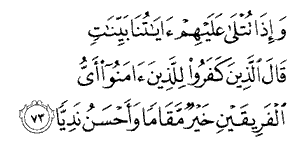 وَإِذَا تُتْلَىٰ عَلَيْهِمْ ءَايَٰتُنَا بَيِّنَٰتٍ
قَالَ ٱلَّذِينَ كَفَرُوا۟ لِلَّذِينَ ءَامَنُوٓا۟ أَىُّ
ٱلْفَرِيقَيْنِ خَيْرٌ مَّقَامًا وَأَحْسَنُ نَدِيًّا ٧٣